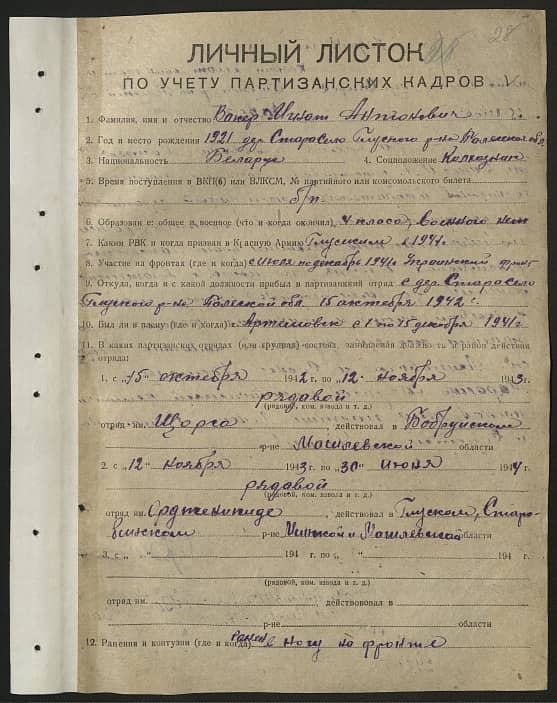 28
28
ЛИЧНЫЙ ЛИСТОК
ПО УЧЕТУ ПАРТИЗАНСКИХ КАДРОВ
1. Фамилия, имя и отчество Вакер Игнат Антонович
2. Год и место рождения 1921 дер Старосело Глусского р-на Полесской обл
3. Национальность Беларус 4. Соцположение Колхозник
5. Время поступления в ВКП(б) или ВЛКСМ, № партийного или комсомольского билета
б/п.
6. Образование: общее и военное (что и когда окончил), 4 класса, военного нет
7. Каким РВК и когда призван в Красную Армию Глусским в 1941 г.
8. Участие на фронтах (где и когда) с июля по декабрь 1941 г. Украинский фронт
9. Откуда, когда и с какой должности прибыл в партизанский отряд с дер. Старосело
Глусского р-на Полесской обл. 15 октября 1942 г.
10. Был ли в плену (где и когда) г. Артемовск с 1 по 15 декабря 1941 г.
11. В каких партизанских отрядах (или группах) состоял, занимаемая должность и район действия
отряда:
1. с „15“ октября 1942 г. по „12“ ноября 1943 г.
рядавой
(рядовой, ком. взвода и т. д.)
отряд им. Щорса, действовал в Бобруйском
р-не Могилевской области
2. с „12“ ноября 1943 г. по „30“ июня 1944 г.
рядавой
(рядовой, ком. взвода и т. д.)
отряд им. Орджоникидзе, действовал в Глуском, Старо-
бинском р-не Минской и Могилевской области
3. с „ “ 194 г. по „ “ 194 г.
(рядовой, ком. взвода и т. д.)
отряд им. , действовал в
р-не области
12. Ранения и контузии (где и когда) ранен в ногу на фронте